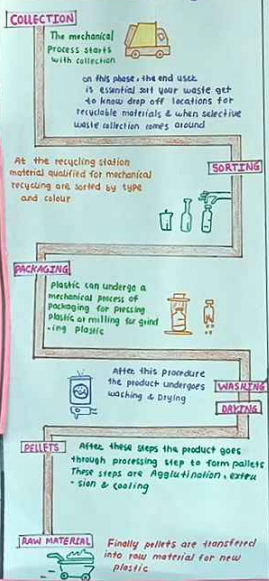 COLLECTION
The mechanical
Process starts
with collection
on this phase, the end user
is essential sort your waste get
to know drop off locations for
recyclable materials & when selective
waste collection comes around
SORTING
At the recycling station
material qualified for mechanical
recycling are sorted by type
and colour
PACKAGING
Plastic can undergo a
mechanical process of
packaging for pressing
plastic or milling for grind
-ing plastic
After this procedure
the product undergoes
washing & Drying
WASHING
DRYING
PELLETS
After these steps the product goes
through processing step to form pallets
These steps are Agglutination, extru
-sion & cooling
RAW MATERIAL
Finally pellets are transfered
into raw material for new
plastic